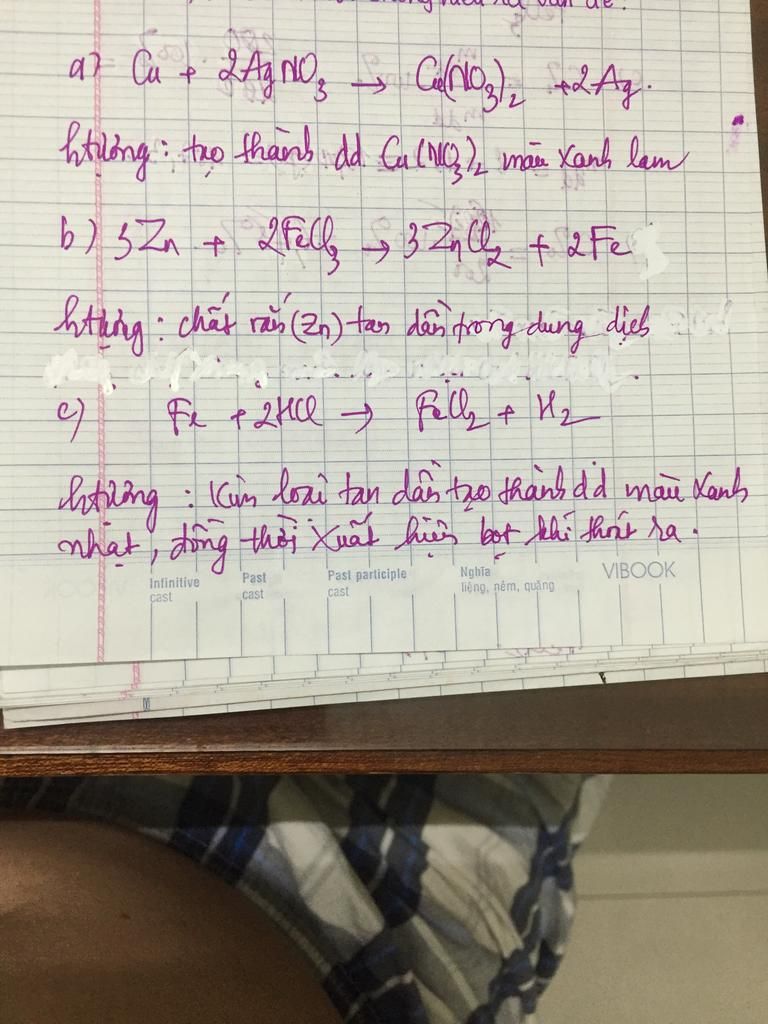 a) Cu + 2AgNO3 → Cu(NO3)2 + 2Ag.
htượng : tạo thành dd Cu(NO3)2 màu xanh lam
b) 3Zn + 2FeCl3 → 3ZnCl2 + 2Fe
htượng : chất rắn (Zn) tan dần trong dung dịch
c) Fe + 2HCl → FeCl2 + H2
htượng : Kim loại tan dần tạo thành dd màu xanh
nhạt, đồng thời xuất hiện bọt khí thoát ra.
Infinitive Past Past participle Nghĩa VIBOOK
cast cast cast liệng, ném, quăng